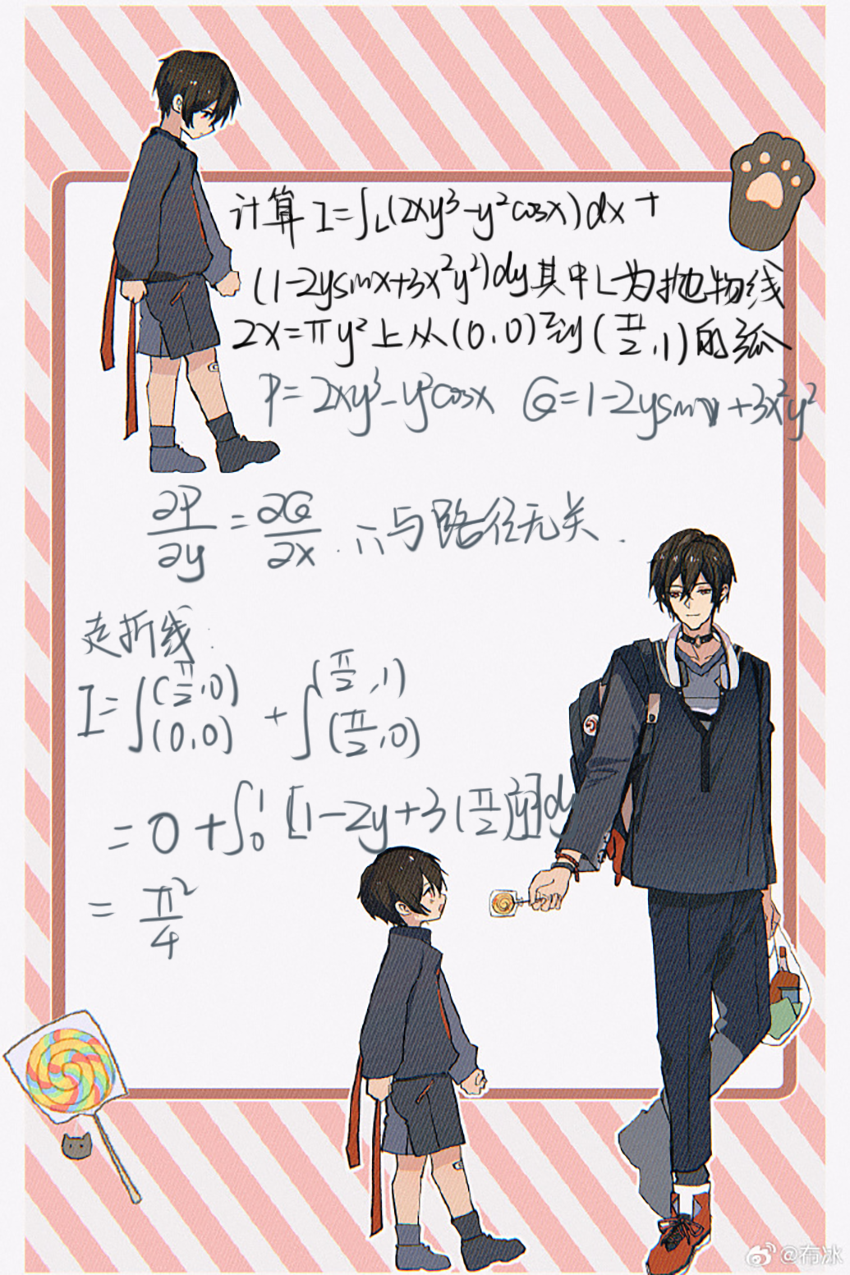 计算 I=∫L(2xy³-y²cosx)dx+
(1-2ysinx+3x²y²)dy其中L为抛物线
2x=πy²上从(0,0)到(π/2,1)的弧
P=2xy³-y²cosx Q=1-2ysinx+3x²y²
∂P/∂y=∂Q/∂x ∴与路径无关.
走折线
I=∫(0,0)(π/2,0)+∫(π/2,0)(π/2,1)
=0+∫₀¹[1-2y+3(π/2)²y²]dy
=π²/4
@布冰